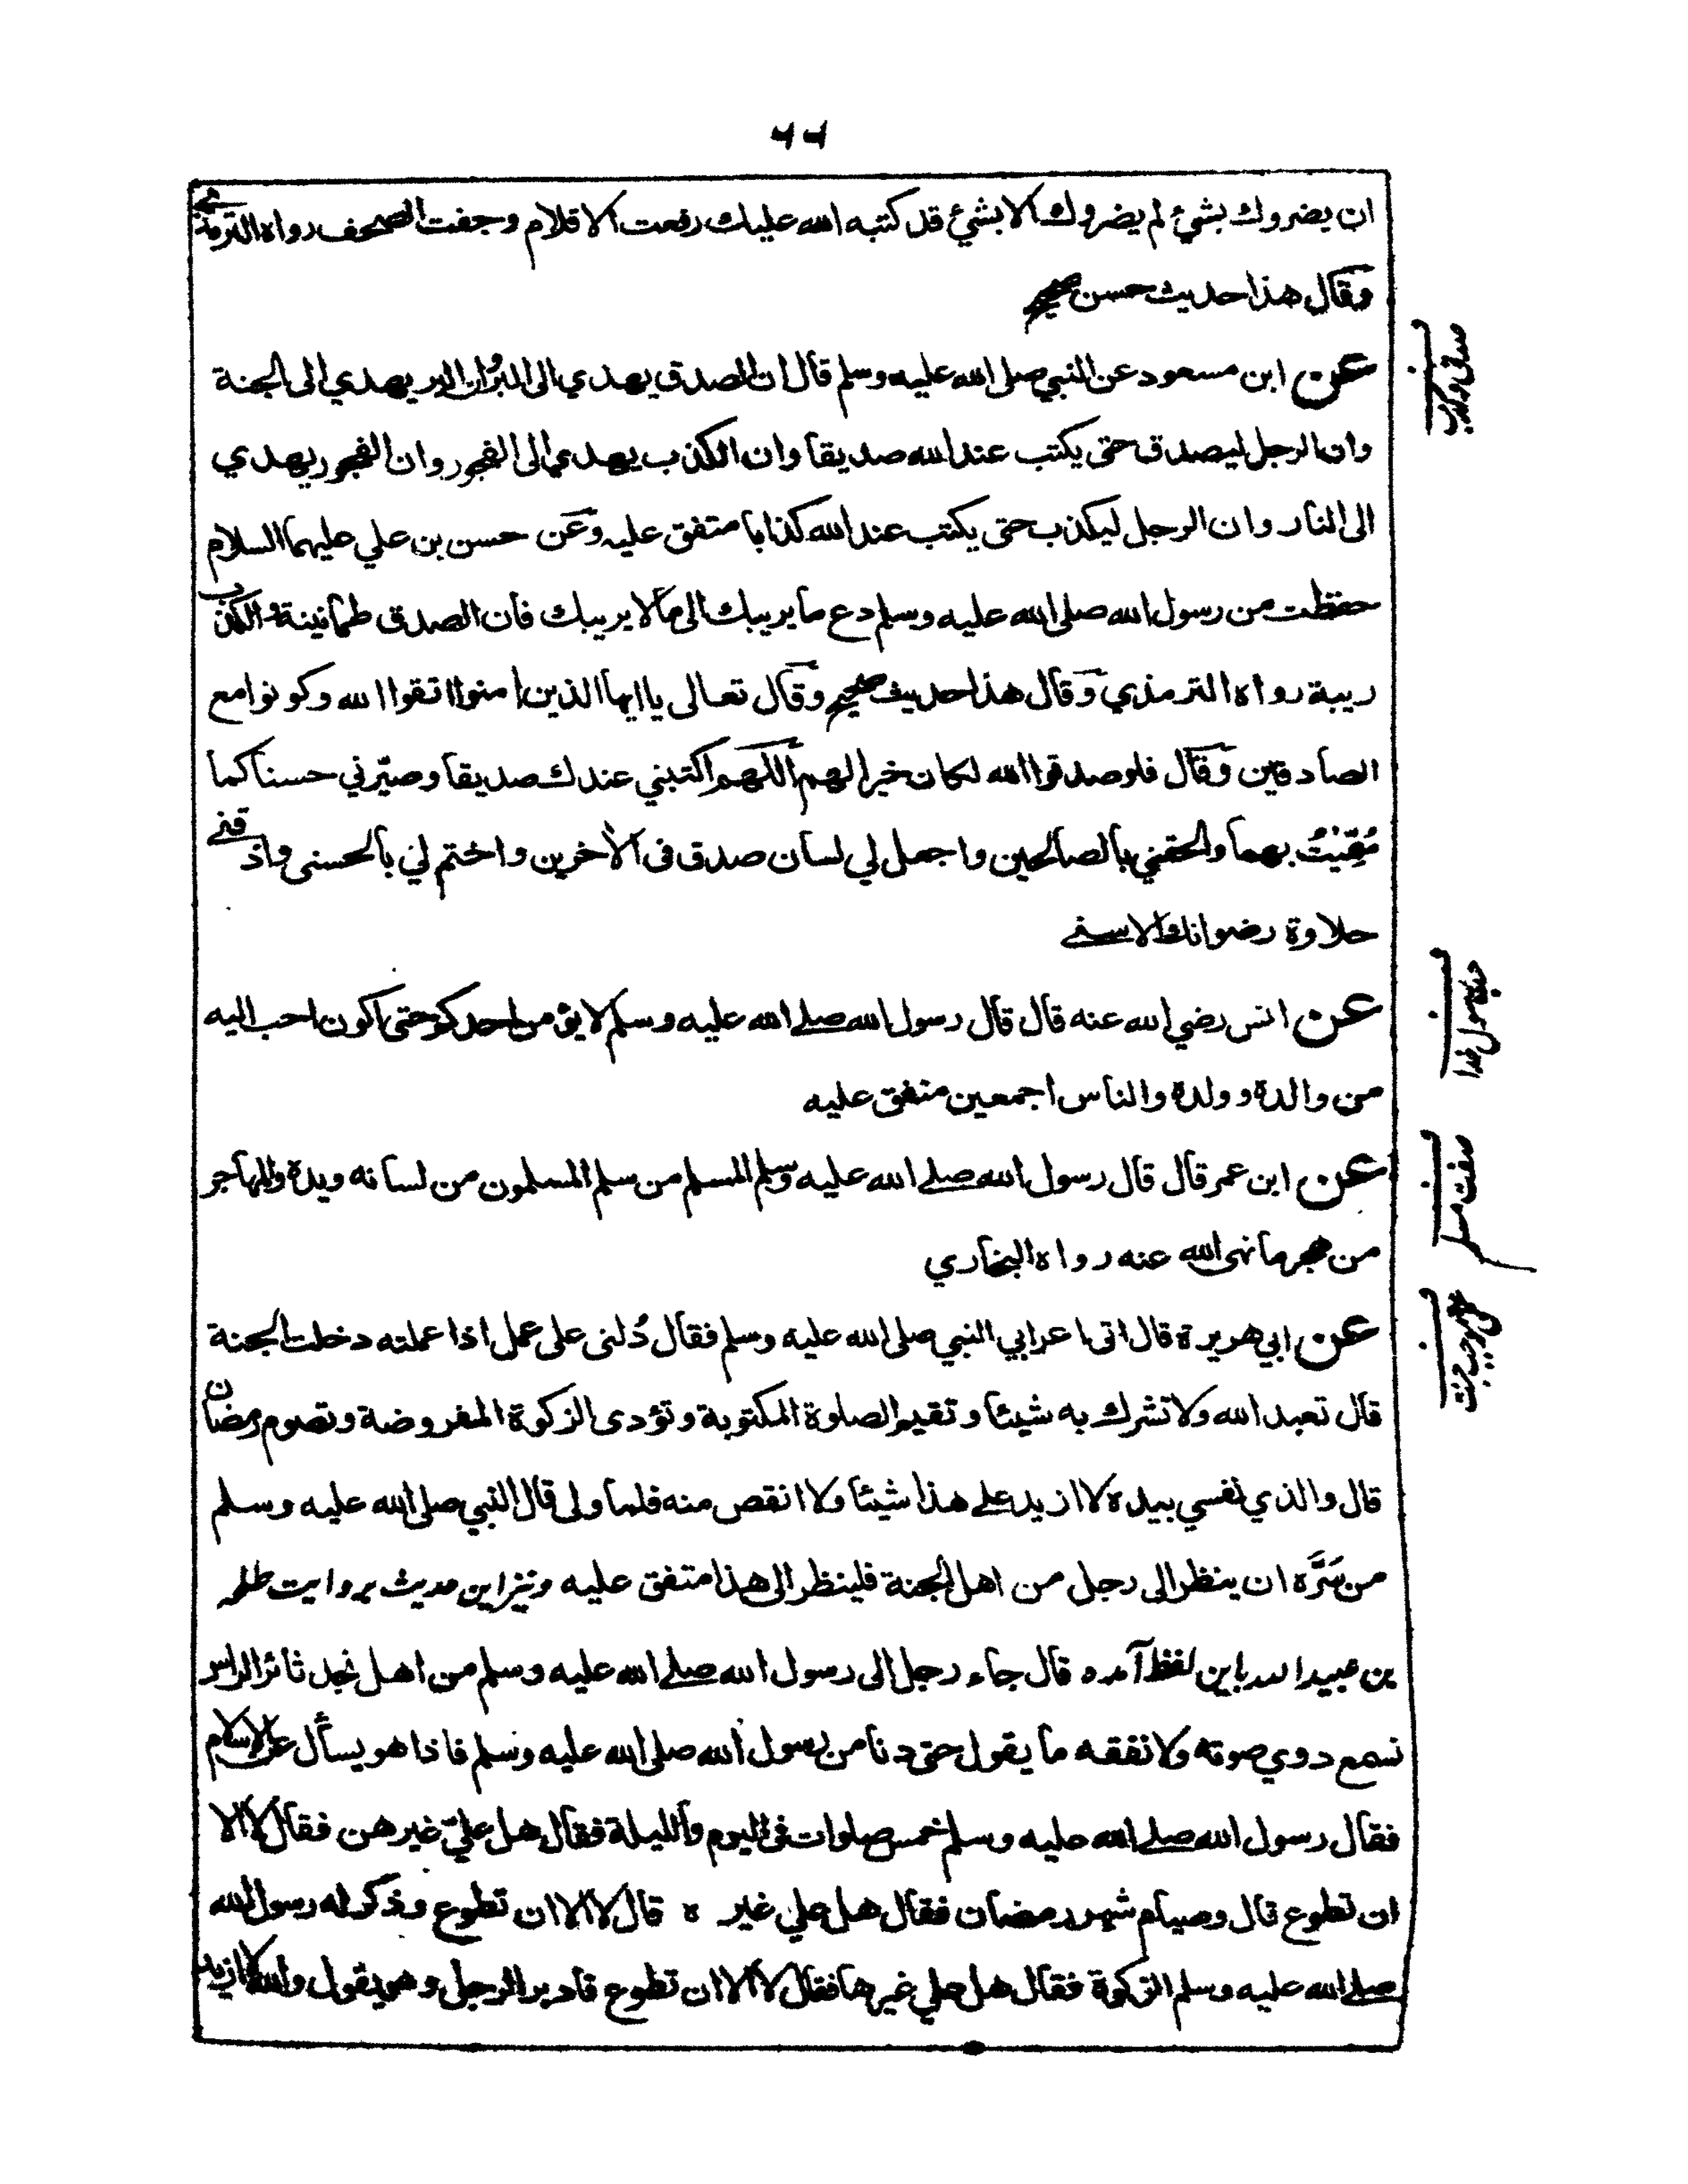 ٦٦
ان يضروك بشئ لم يضروك الا بشئ قد كتبه الله عليك رفعت الاقلام وجفت الصحف رواه الترمذي
وقال هذا حديث حسن صحيح
صدق و كذب
عن ابن مسعود عن النبي صلى الله عليه وسلم قال ان الصدق يهدي الى البر وان البر يهدي الى الجنة
وان الرجل ليصدق حتى يكتب عند الله صديقا وان الكذب يهدي الى الفجور وان الفجور يهدي
الى النار وان الرجل ليكذب حتى يكتب عند الله كذابا متفق عليه وعن حسن بن علي عليهما السلام
حفظت من رسول الله صلى الله عليه وسلم دع ما يريبك الى ما لا يريبك فان الصدق طمانينة والكذب
ريبة رواه الترمذي وقال هذا حديث صحيح وقال تعالى يا ايها الذين امنوا اتقوا الله وكونوا مع
الصادقين وقال فلو صدقوا الله لكان خيرا لهم اللهم اكتبني عندك صديقا وصيّرني حسنا كما
سُمِّيْتُ بهما والحقني بالصالحين واجعل لي لسان صدق فى الآخرين واختم لي بالحسنى واذقني
حلاوة رضوانك الاسنى
حب رسول خدا
عن انس رضي الله عنه قال قال رسول الله صلى الله عليه وسلم لا يؤمن احدكم حتى اكون احب اليه
من والده وولده والناس اجمعين متفق عليه
صفت مسلم
عن ابن عمر قال قال رسول الله صلى الله عليه وسلم المسلم من سلم المسلمون من لسانه ويده والمهاجر
من هجر ما نهى الله عنه رواه البخاري
موجب جنت
عن ابي هريرة قال اتى اعرابي النبي صلى الله عليه وسلم فقال دُلنى على عمل اذا عملته دخلت الجنة
قال تعبد الله ولا تشرك به شيئا وتقيم الصلوة المكتوبة وتؤدى الزكوة المفروضة وتصوم رمضان
قال والذي نفسي بيده لا ازيد على هذا شيئا ولا انقص منه فلما ولى قال النبي صلى الله عليه وسلم
من سَرَّه ان ينظر الى رجل من اهل الجنة فلينظر الى هذا متفق عليه ونيز اين حديث بروايت طلحه
بن عبيد الله باين لفظ آمده قال جاء رجل الى رسول الله صلى الله عليه وسلم من اهل نجد ثائر الراس
نسمع دوي صوته ولا نفقه ما يقول حتى دنا من رسول الله صلى الله عليه وسلم فاذا هو يسأل عن الاسلام
فقال رسول الله صلى الله عليه وسلم خمس صلوات فى اليوم والليلة فقال هل عليّ غيرهن فقال لا الا
ان تطوع قال وصيام شهر رمضان فقال هل علي غيره قال لا الا ان تطوع وذكر له رسول الله
صلى الله عليه وسلم الزكوة فقال هل علي غيرها فقال لا الا ان تطوع فادبر الرجل وهو يقول والله لا ازيد